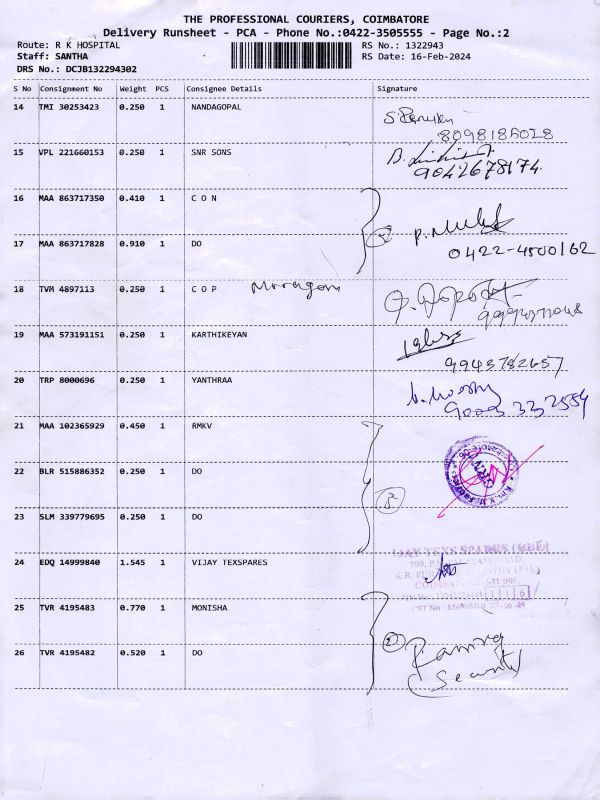 THE PROFESSIONAL COURIERS, COIMBATORE
Delivery Runsheet - PCA - Phone No.:0422-3505555 - Page No.:2
Route: R K HOSPITAL
Staff: SANTHA
DRS No.: DCJB132294302
RS No.: 1322943
RS Date: 16-Feb-2024
S No Consignment No Weight PCS Consignee Details Signature
14 TMI 30253423 0.250 1 NANDAGOPAL
8098186028
15 VPL 221660153 0.250 1 SNR SONS
9042678174
16 MAA 863717350 0.410 1 C O N
17 MAA 863717828 0.910 1 DO
0422-4500162
18 TVM 4897113 0.250 1 C O P
19 MAA 573191151 0.250 1 KARTHIKEYAN
9943782657
20 TRP 8000696 0.250 1 YANTHRAA
21 MAA 102365929 0.450 1 RMKV
22 BLR 515886352 0.250 1 DO
23 SLM 339779695 0.250 1 DO
24 EDQ 14999840 1.545 1 VIJAY TEXSPARES
25 TVR 4195483 0.770 1 MONISHA
26 TVR 4195482 0.520 1 DO
Security